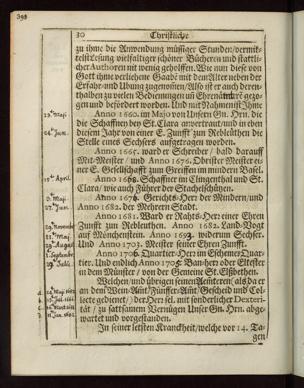 30 Christliche
zu ihme die Anwendung müssiger Stunden/vermit-
telst Lesung vielfaltiger schöner Bücheren und stattli-
cher Authoren nit wenig geholffen. Wie nun diese von
Gott ihme verliehene Gaabe mit dem Alter neben der
Erfahr- und Ubung zugenom̃en/Also ist er auch deren-
thalben zu vielen Bedienungen uñ Ehrenämbtern gezo-
gen und befördert worden. Und mit Nahmen ist Ihme
29. Maij. Anno 1660. im Majo von Unsern Gn. Hrn. die
die Schaffney bey St. Clara anvertraut/und in eben
24. Jun. diesem Jahr von einer E. Zunfft zu Rebleuthen die
Stelle eines Sechsers aufgetragen worden.
Anno 1665. ward er Schreiber / bald darauff
Mit-Meister / und Anno 1676. Obrister Meister ei-
ner E. Gesellschafft zum Greiffen im mindern Basel.
Anno 1668. Schaffner im Clingenthal und St.
Clara/ wie auch Führer der Stachelschützen.
Maij. Anno 1676. Gerichts-Herr der Mindern/und
Jun. Anno 1682. der Mehrern Stadt.
Anno 1681. Ward er Rahts-Herr einer Ehren
Zunfft zum Rebleuthen. Anno 1682. Land-Vogt
auf Mönchenstein. Anno 1693. widerum Sechser.
29. August Und Anno 1703. Meister seiner Ehren Zunfft.
1. Septemb. Anno 1706. Quartier-Herr im Eschemer Quar-
29. Julij. tier. Und endlich Anno 1705. Bau-herr oder Eltester
in dem Münster / von der Gemeine St. Elßbethen.
Welchen/und übrigen seinen Aemteren (als da er
an dem Wein-Amt/Fünffer-Amt/Gescheid und Col-
lecte gedienet/) der Herr sel. mit sonderlicher Dexteri-
tät / zu sattsamem Vernügen Unser Gn. Hrn. abge-
wartet und vorgestanden.
In seiner letsten Kranckheit/welche vor 14. Ta-
gen